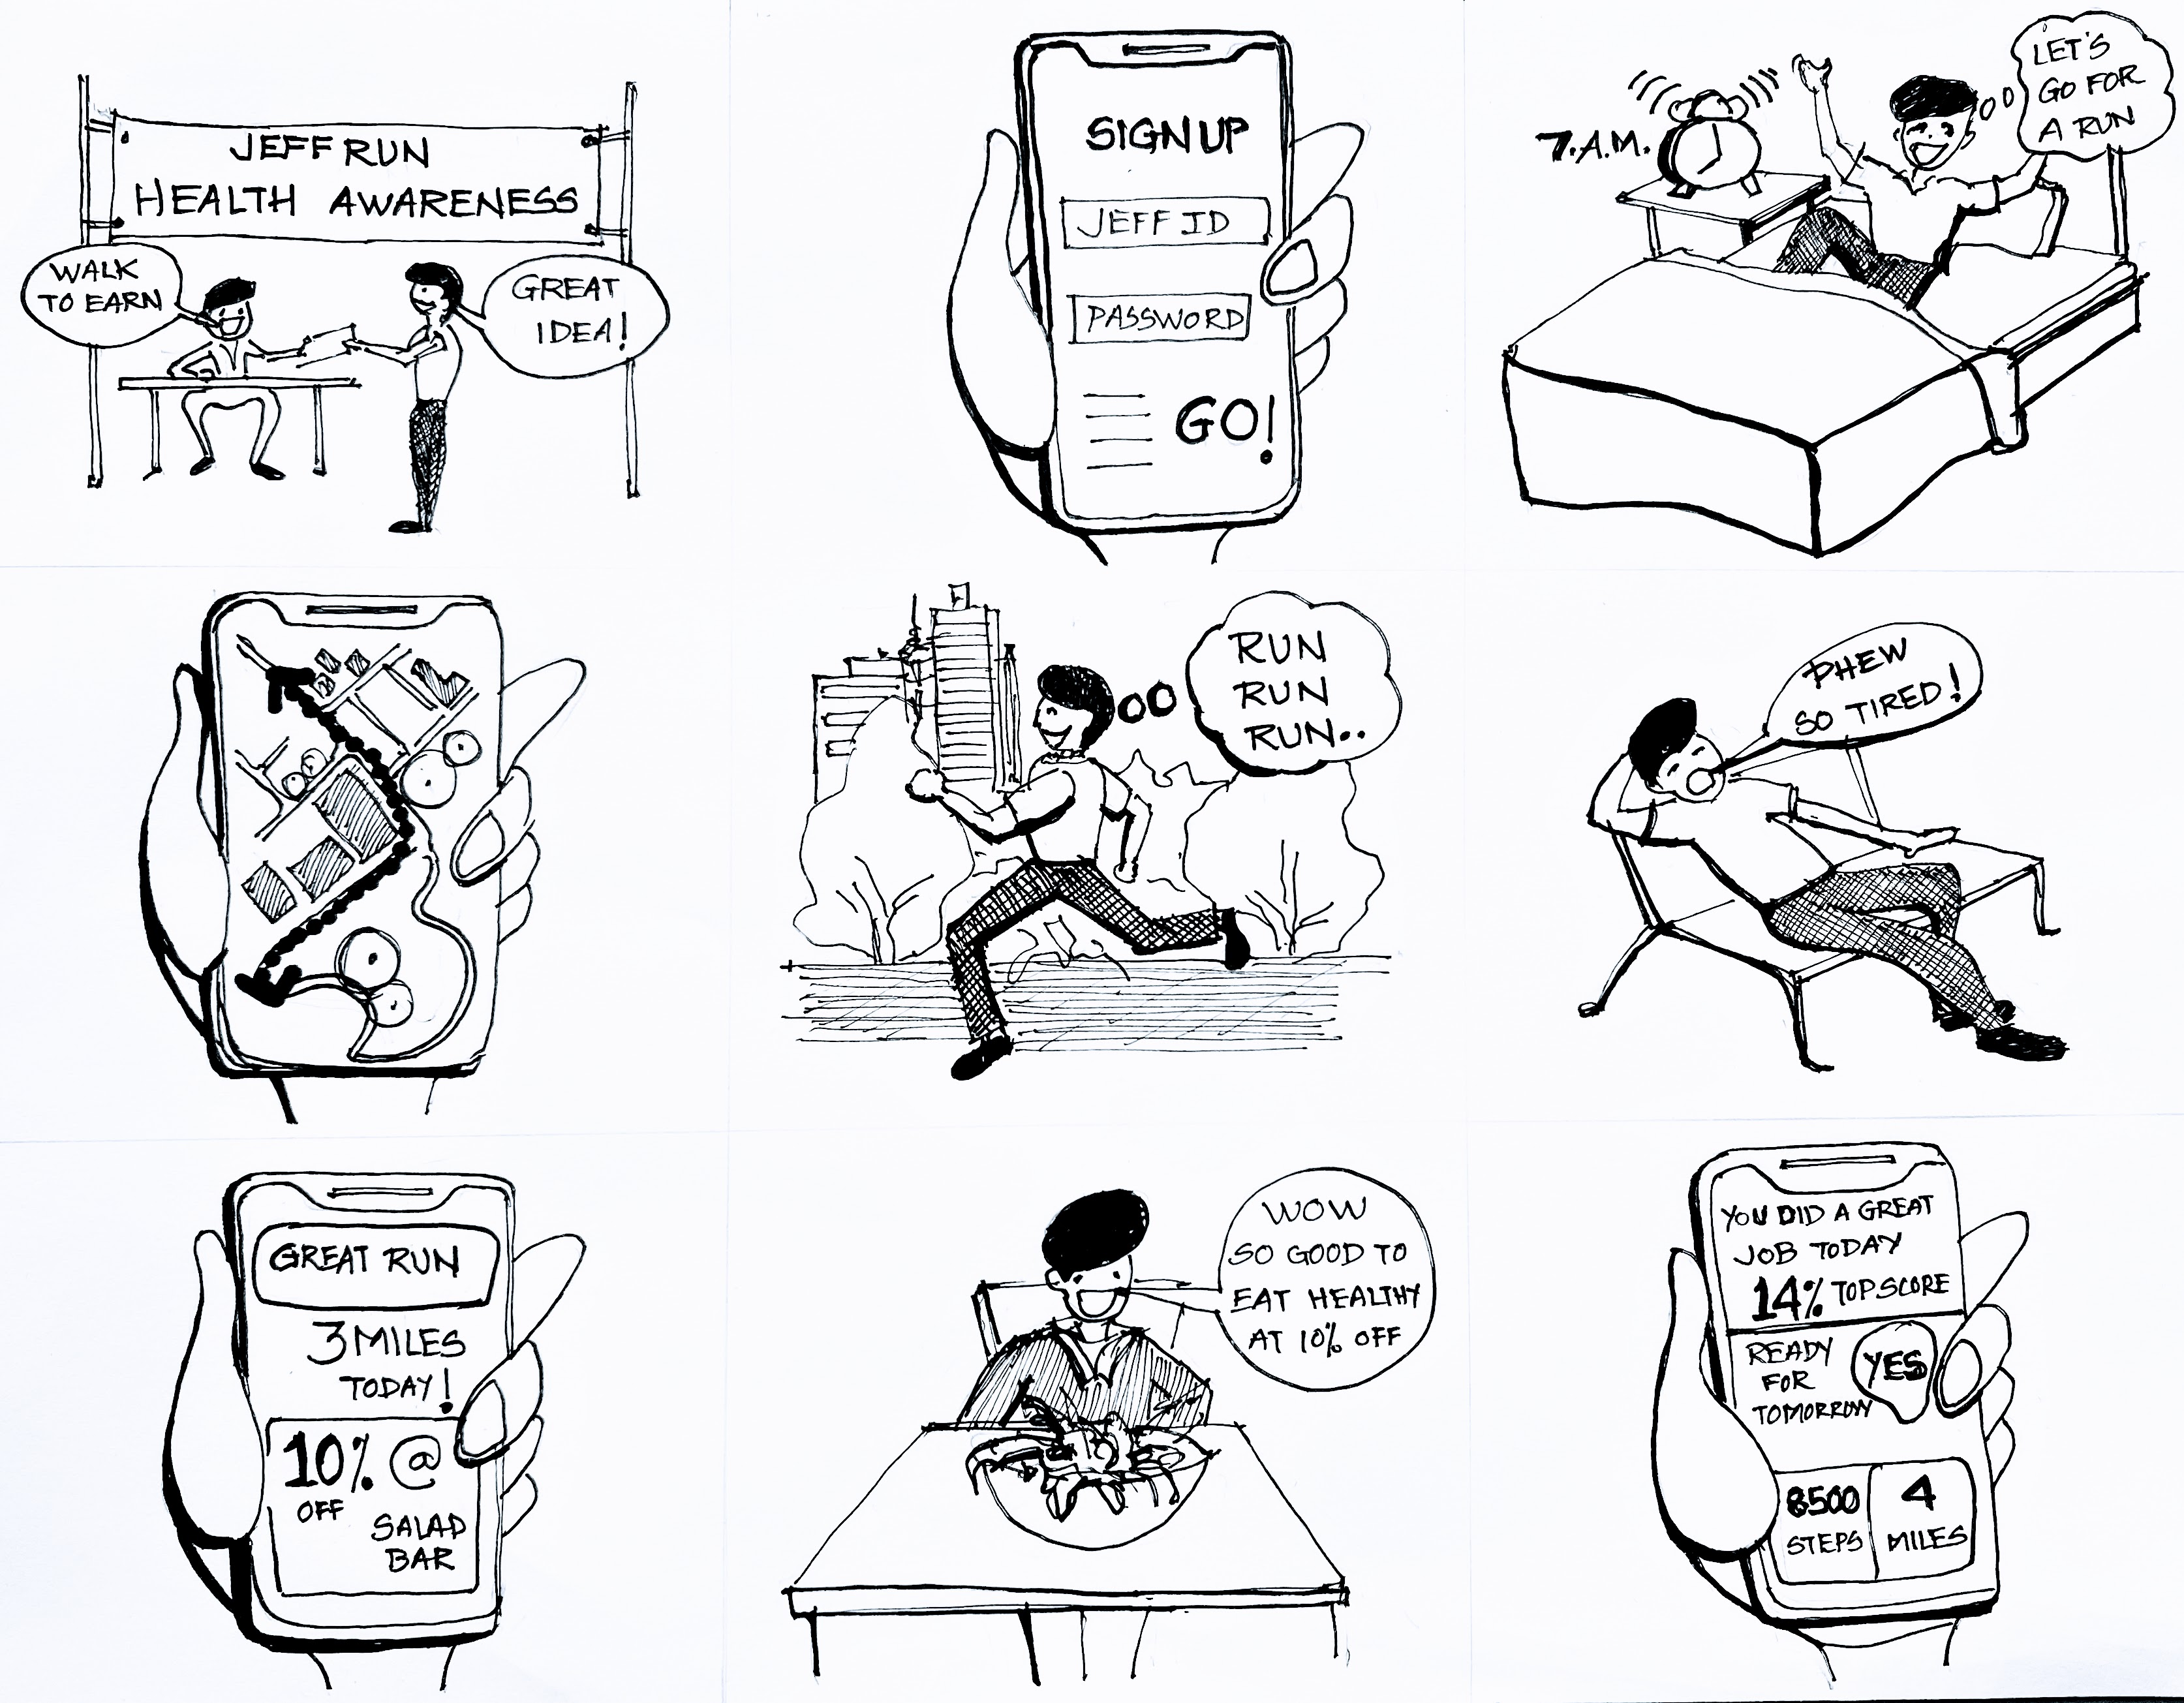 JEFF RUN
HEALTH AWARENESS
WALK
TO EARN
GREAT
IDEA!
SIGN UP
JEFF ID
PASSWORD
GO!
7.A.M.
LET'S
GO FOR
A RUN
RUN
RUN
RUN..
PHEW
SO TIRED!
GREAT RUN
3 MILES
TODAY!
10% @
OFF
SALAD
BAR
WOW
SO GOOD TO
EAT HEALTHY
AT 10% OFF
YOU DID A GREAT
JOB TODAY
14% TOP SCORE
READY
FOR
TOMORROW
YES
8500
STEPS
4
MILES